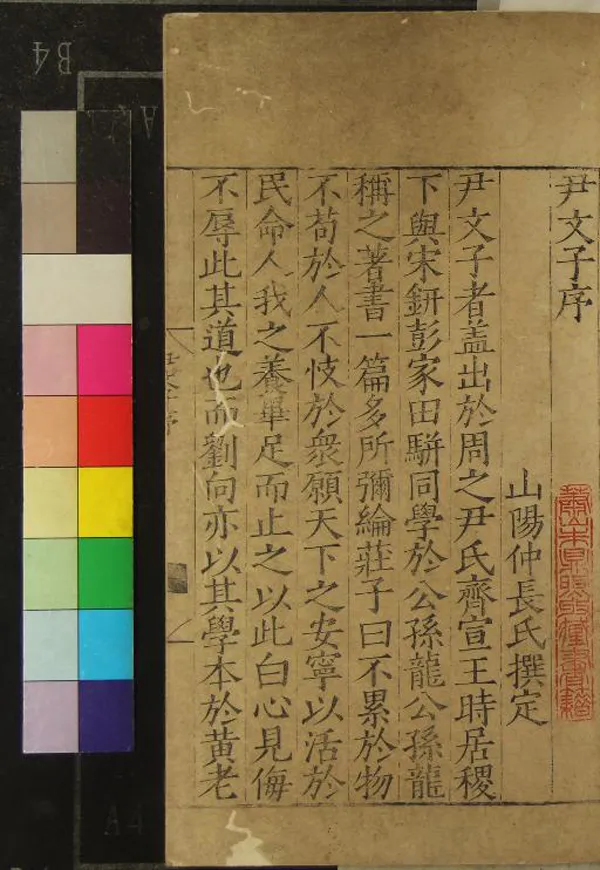 尹文子序
山陽仲長氏撰定
尹文子者盖出於周之尹氏齊宣王時居稷
下與宋鈃彭家田駢同學於公孫龍公孫龍
稱之著書一篇多所彌綸莊子曰不累於物
不苟於人不忮於衆願天下之安寧以活於
民命人我之養畢足而止之以此白心見侮
不辱此其道也而劉向亦以其學本於黃老
B4
A4